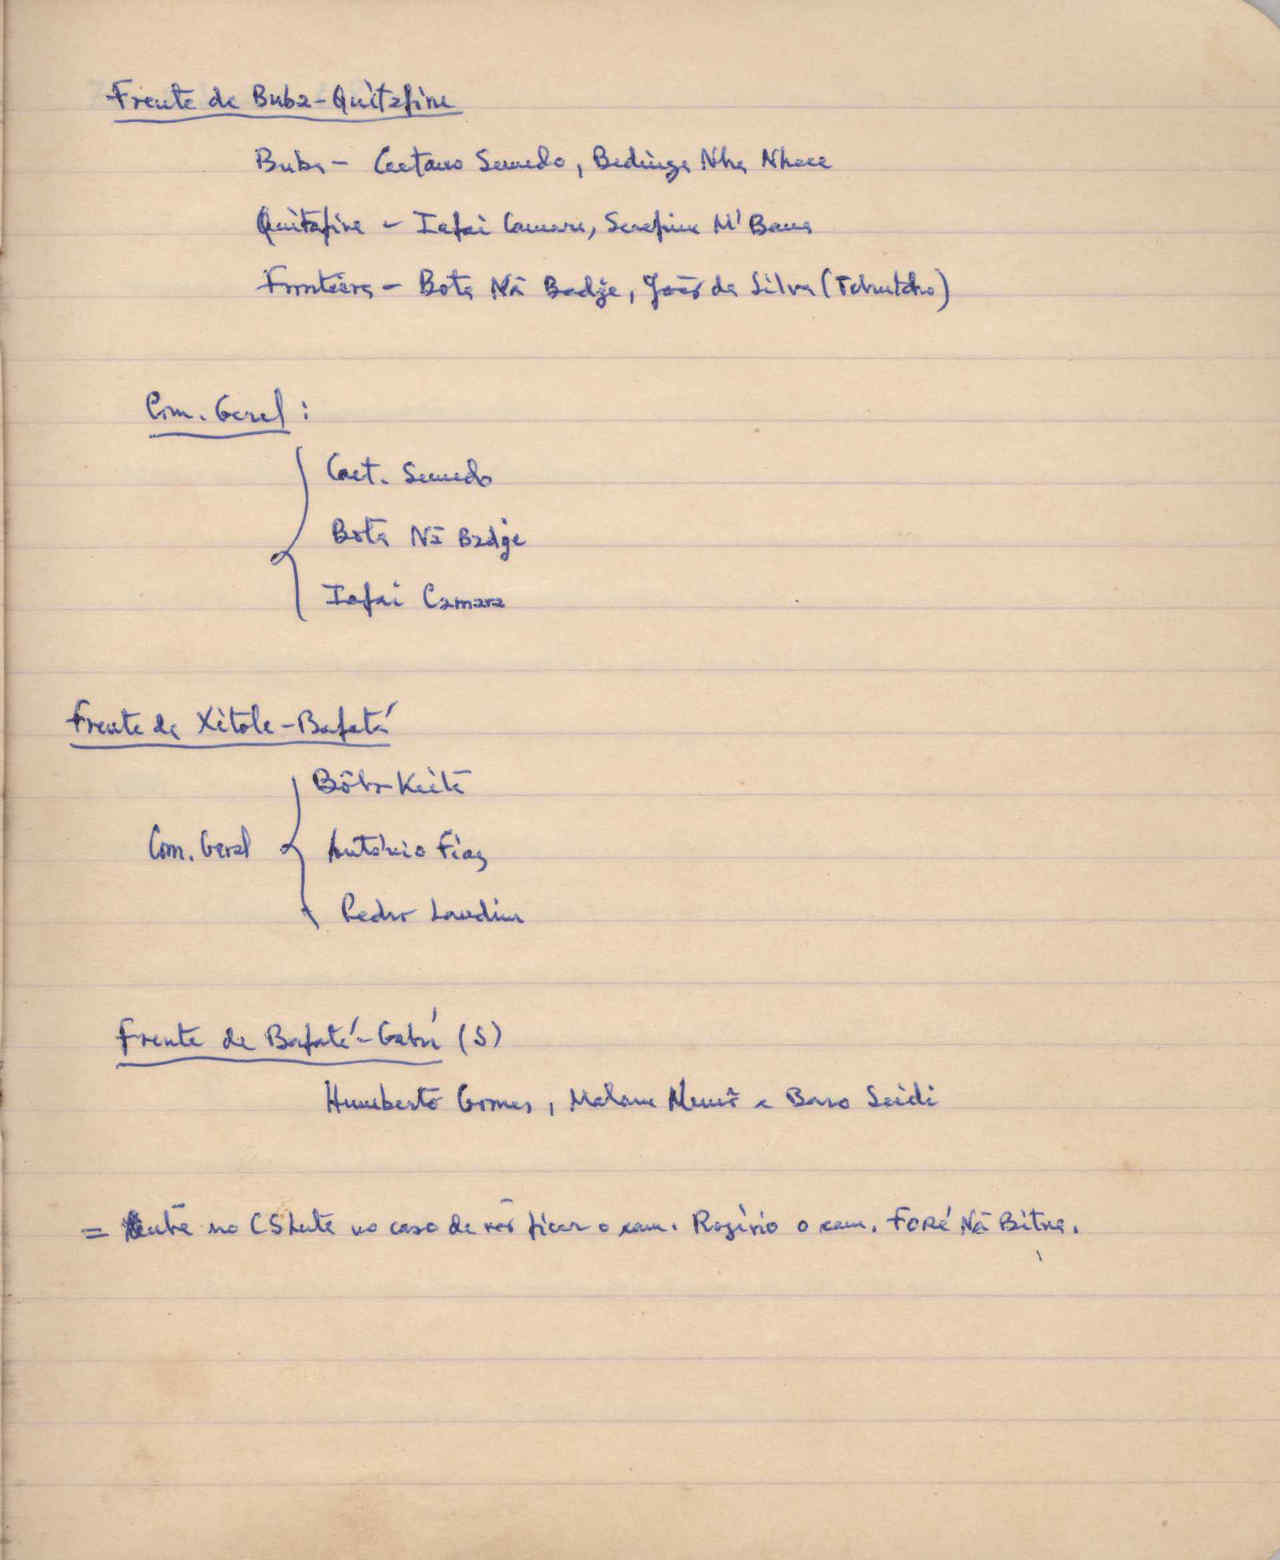 Frente de Buba-Quitafine
Buba - Caetano Semedo, Bedinga Nha
Quitafine - Iafai Camara, Serafim M'Bana
Fronteira - Bota Nã Badje, João da Silva (Tchutcho)
Com. Geral :
Caet. Semedo
Bota Nã Badje
Iafai Camara
Frente de Xitole-Bafatá
Bôbo Keità
Com. Geral
António Fiaz
Pedro Landim
Frente de Bafatá-Gabú (S)
Humberto Gomes, Malam e Baro Seidi
= no CSLuta no caso de não ficar o cam. Rogério o cam. FORÉ Nã Bitna.